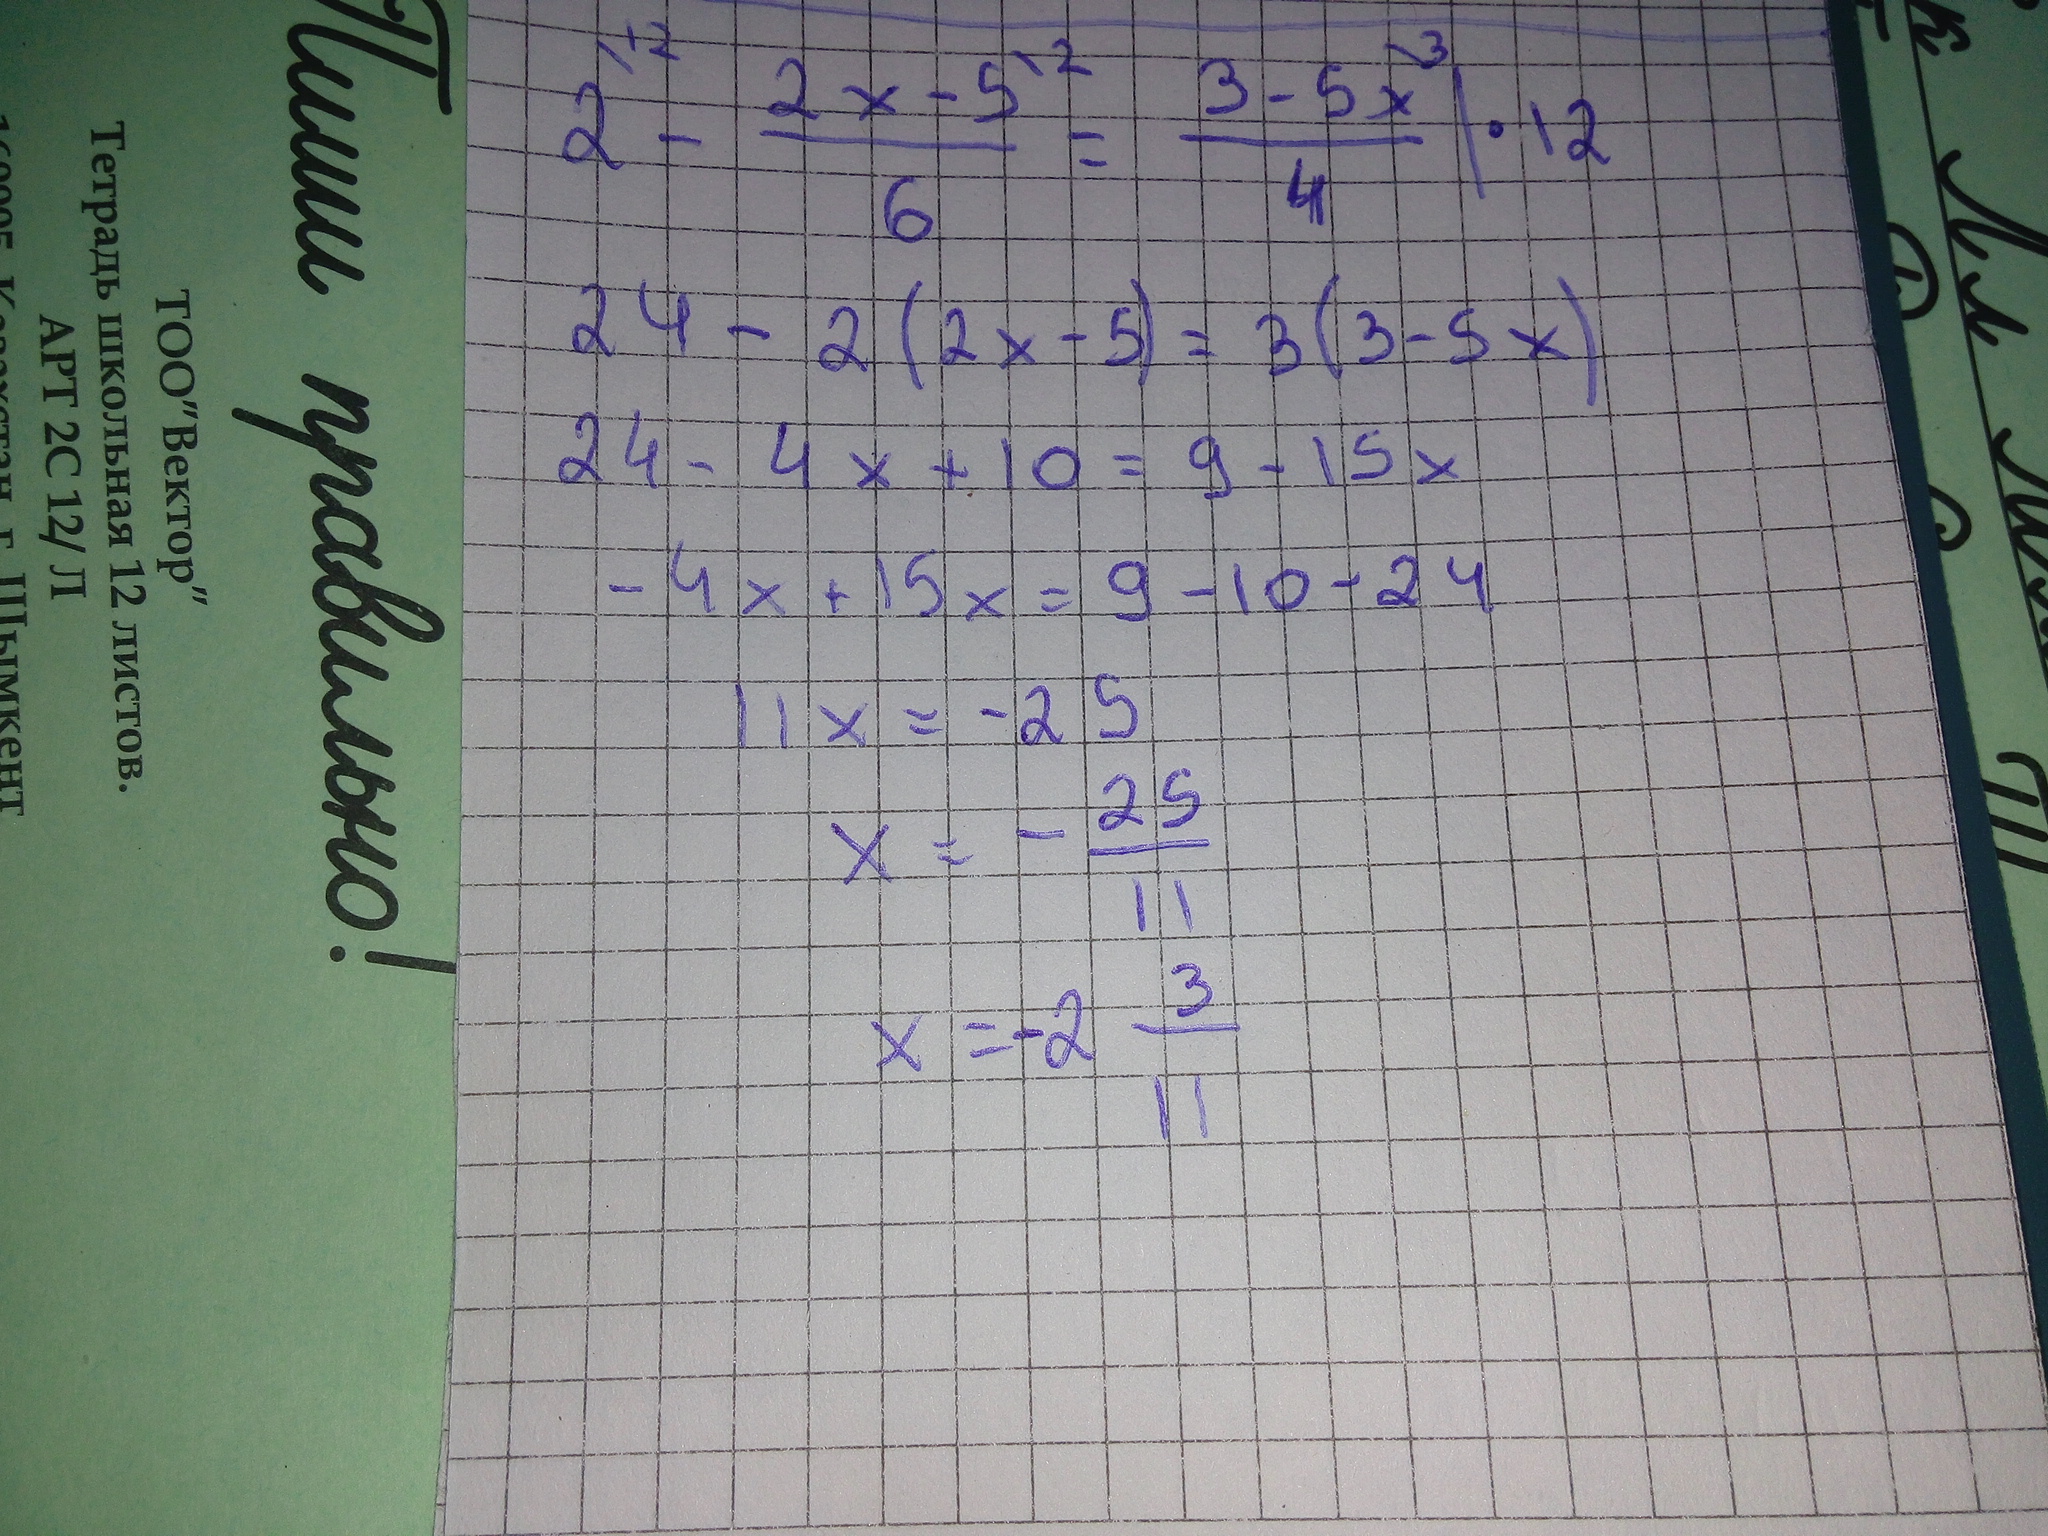 Пиши правильно!
ТОО"Вектор"
Тетрадь школьная 12 листов.
АРТ 2С 12/Л
2^12 - (2x - 5)^2 / 6 = (3 - 5x)^3 / 4 | · 12
24 - 2(2x - 5) = 3(3 - 5x)
24 - 4x + 10 = 9 - 15x
-4x + 15x = 9 - 10 - 24
11x = -25
x = - 25/11
x = -2 3/11